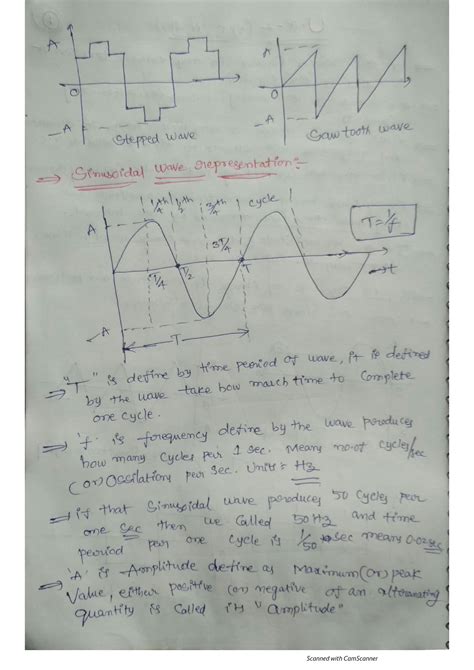 A A
O O
-A -A
Stepped wave Sawtooth wave
⇒ Sinusoidal wave representation:-
1/4th 1/2 3/4th cycle
A T=1/f
3T/4
T/4 T/2 T →t
-A
T
⇒ "T" is define by time period of wave, it is defined
by the wave take how much time to complete
one cycle.
⇒ 'f' is frequency define by the wave produces
how many cycles per 1 sec. Means no.of cycles/sec
(or) Ossilation per sec. Unit is Hz
⇒ if that Sinusoidal wave produces 50 cycles per
one sec then we called 50Hz and time
period per one cycle is 1/50 sec means 0.02sec
⇒ 'A' is Amplitude define as Maximum(or) peak
Value, either positive (or) negative of an alternating
quantity is called its "amplitude"
Scanned with CamScanner